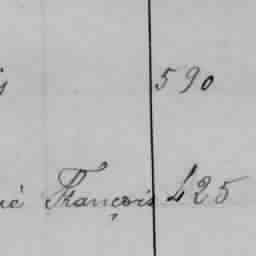 590
François 425